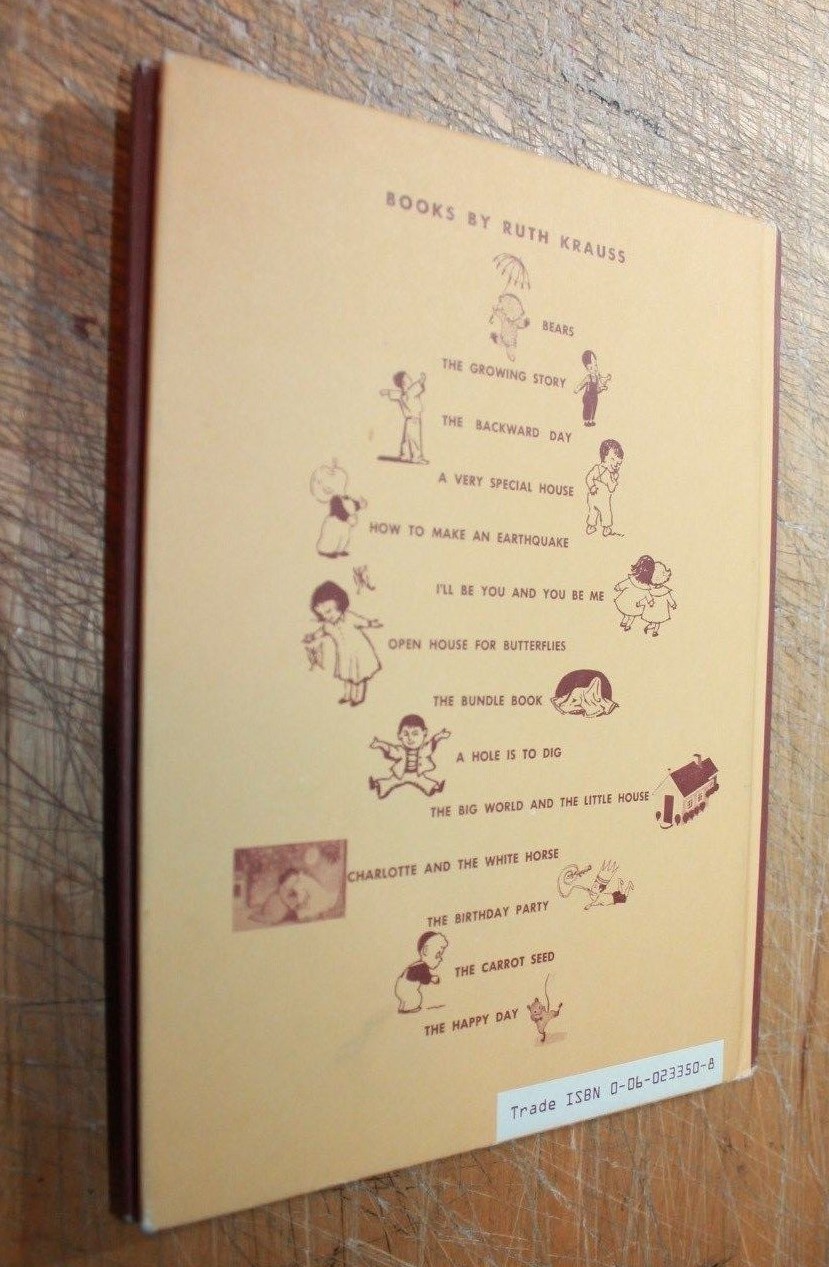 BOOKS BY RUTH KRAUSS
BEARS
THE GROWING STORY
THE BACKWARD DAY
A VERY SPECIAL HOUSE
HOW TO MAKE AN EARTHQUAKE
I'LL BE YOU AND YOU BE ME
OPEN HOUSE FOR BUTTERFLIES
THE BUNDLE BOOK
A HOLE IS TO DIG
THE BIG WORLD AND THE LITTLE HOUSE
CHARLOTTE AND THE WHITE HORSE
THE BIRTHDAY PARTY
THE CARROT SEED
THE HAPPY DAY
Trade ISBN 0-06-023350-8